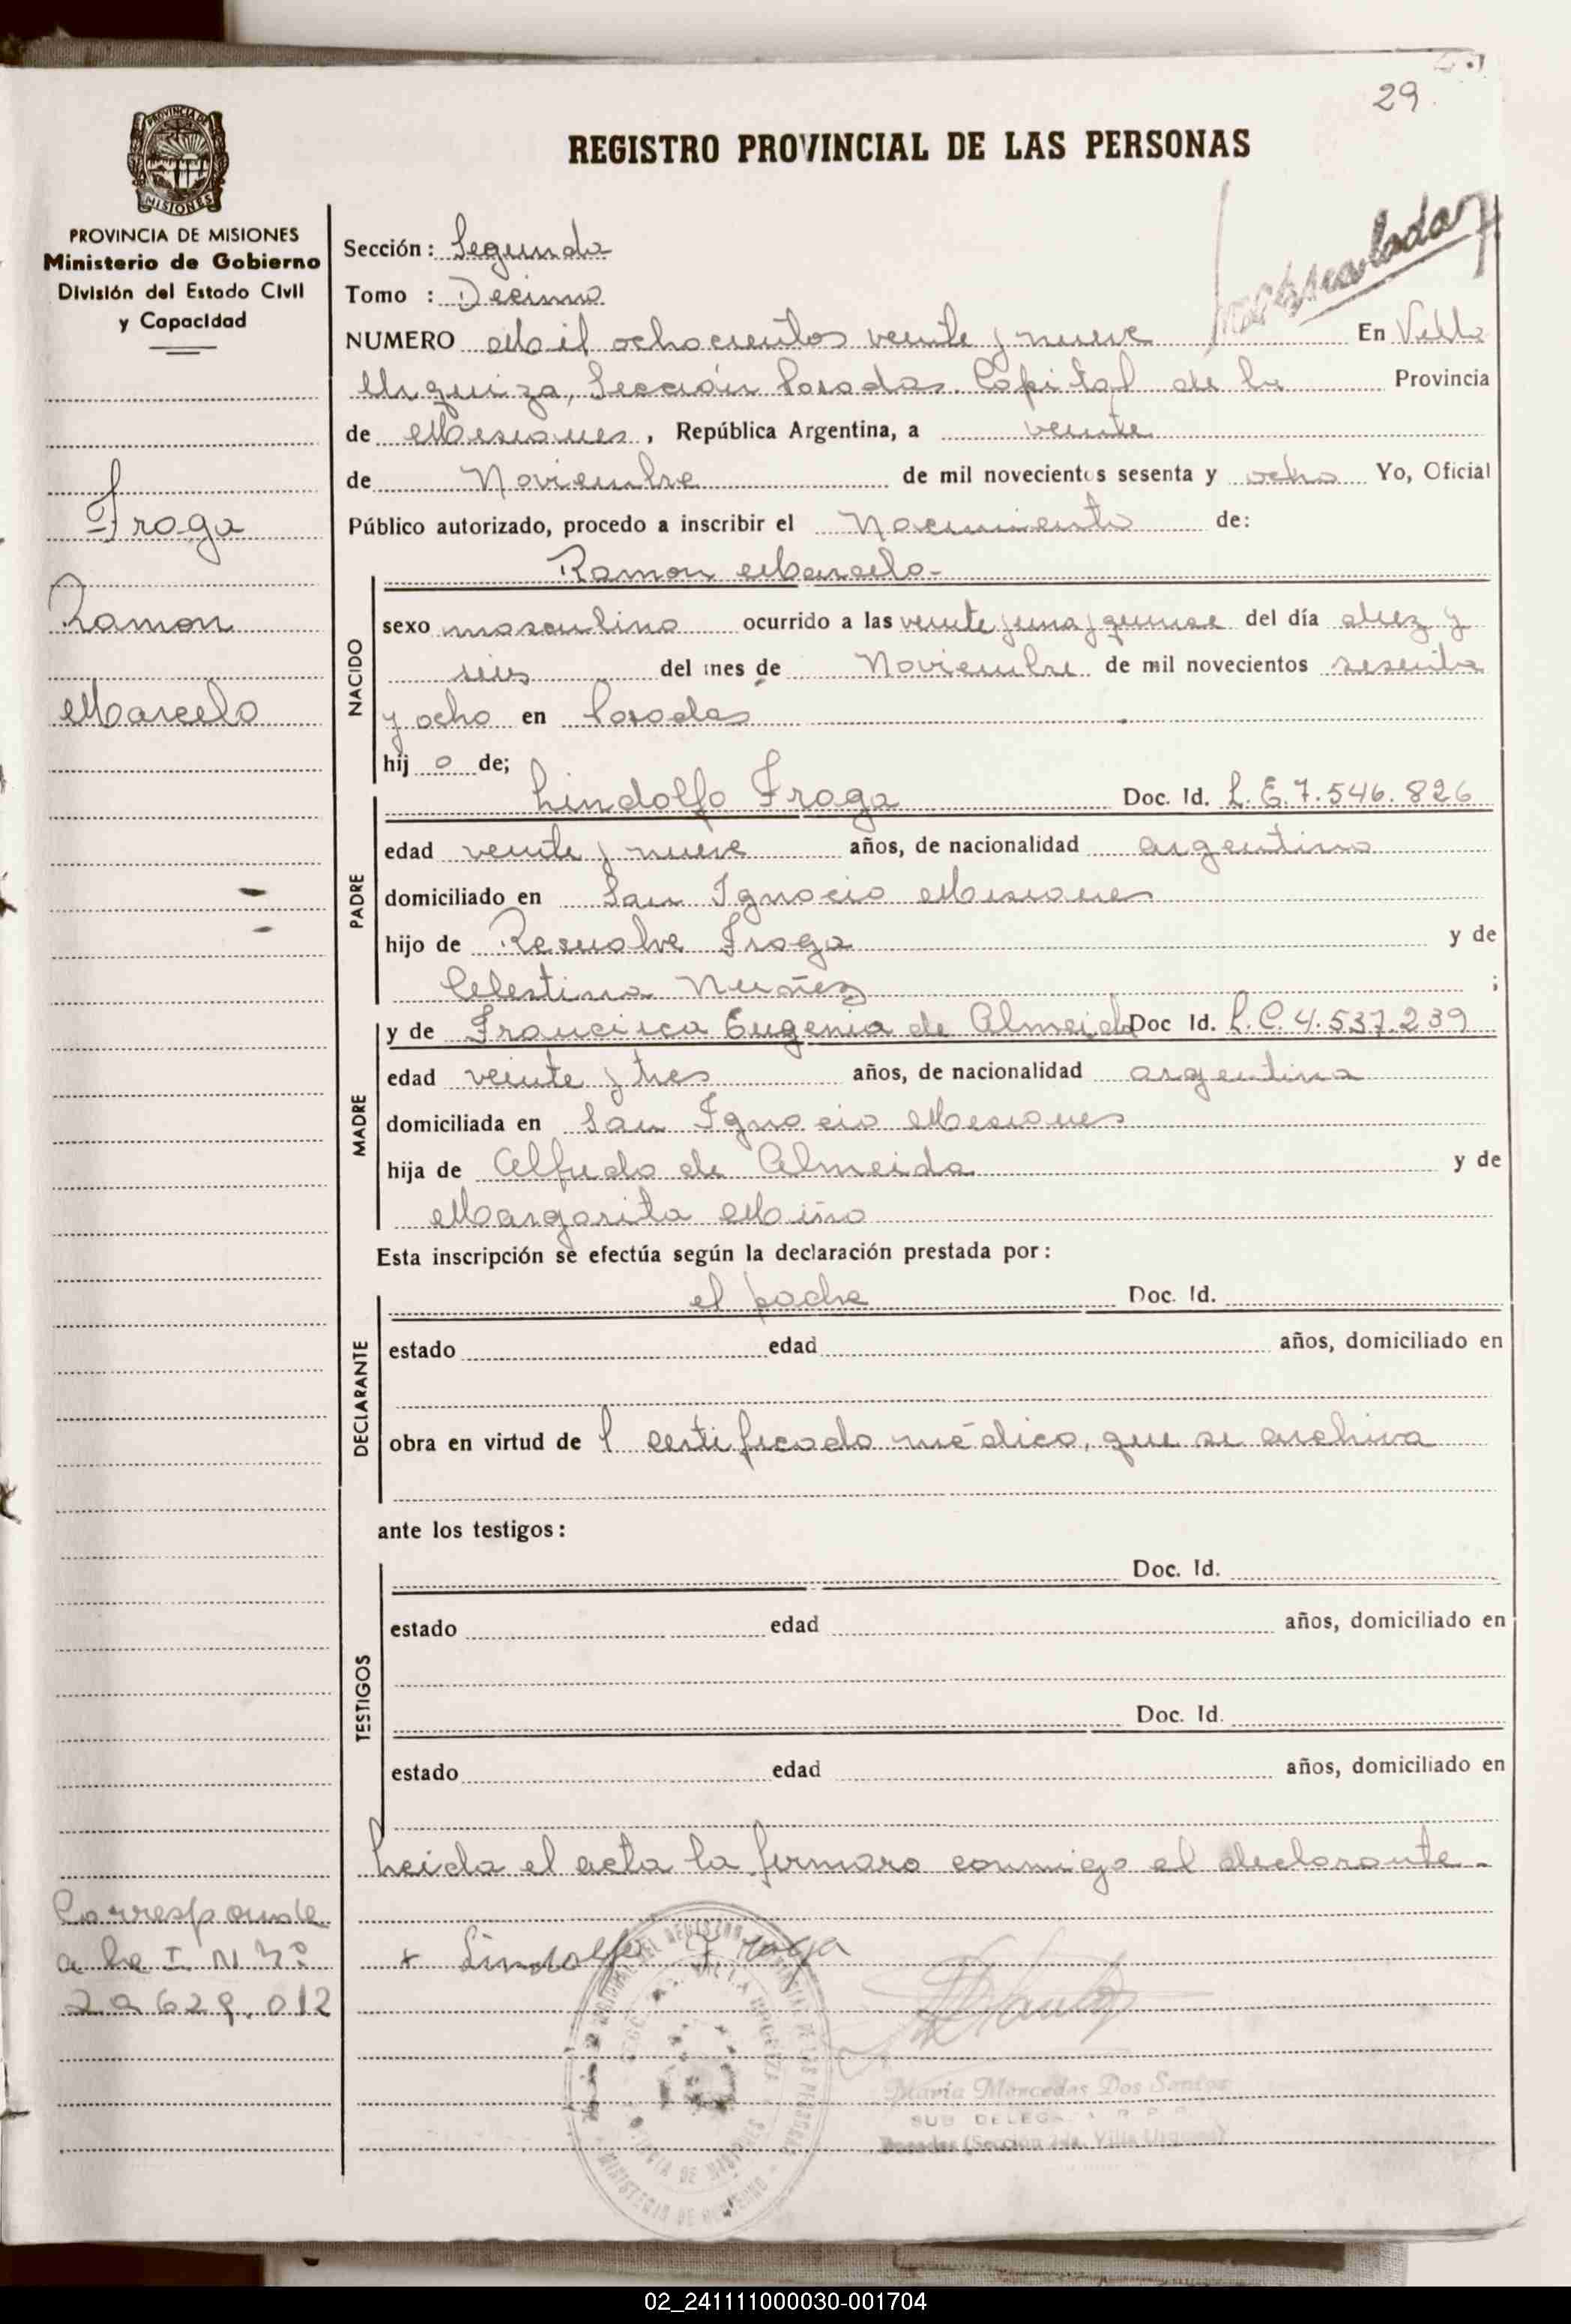 29
REGISTRO PROVINCIAL DE LAS PERSONAS
PROVINCIA DE
MISIONES
PROVINCIA DE MISIONES
Ministerio de Gobierno
División del Estado Civil
y Capacidad
Fraga
Ramon
Marcelo
Corresponde
a la I N Nº
20.629.012
Sección: Segunda
Tomo : Decimo
NUMERO Mil ochocientos veinte y nueve En Villa
Urquiza, Sección Posadas Capital de la Provincia
de Misiones, República Argentina, a veinte
de Noviembre de mil novecientos sesenta y ocho Yo, Oficial
Público autorizado, procedo a inscribir el Nacimiento de:
Ramon Marcelo-
NACIDO
sexo masculino ocurrido a las veinte y una y quince del día diez y
seis del mes de Noviembre de mil novecientos sesenta
y ocho en Posadas
hij o de;
PADRE
Lindolfo Fraga Doc. Id. L.E.7.546.826
edad veinte y nueve años, de nacionalidad argentino
domiciliado en San Ignacio Misiones
hijo de Fraga y de
Celestina Nuñez ;
MADRE
y de Francisca Eugenia de Almeida Doc Id. L.C.4.537.239
edad veinte y tres años, de nacionalidad argentina
domiciliada en San Ignacio Misiones
hija de Alfredo de Almeida y de
Margarita Miño
Esta inscripción se efectúa según la declaración prestada por:
DECLARANTE
el padre Doc. Id.
estado edad años, domiciliado en
obra en virtud de l certificado médico, que se archiva
ante los testigos:
TESTIGOS
Doc. Id.
estado edad años, domiciliado en
Doc. Id.
estado edad años, domiciliado en
Leida el acta la firmara conmigo el declarante-
x Lindolfo Fraga
Maria Mercedes Dos Santos
SUB DELEG
Posadas (Sección 2da. Villa Urquiza)
02_241111000030-001704